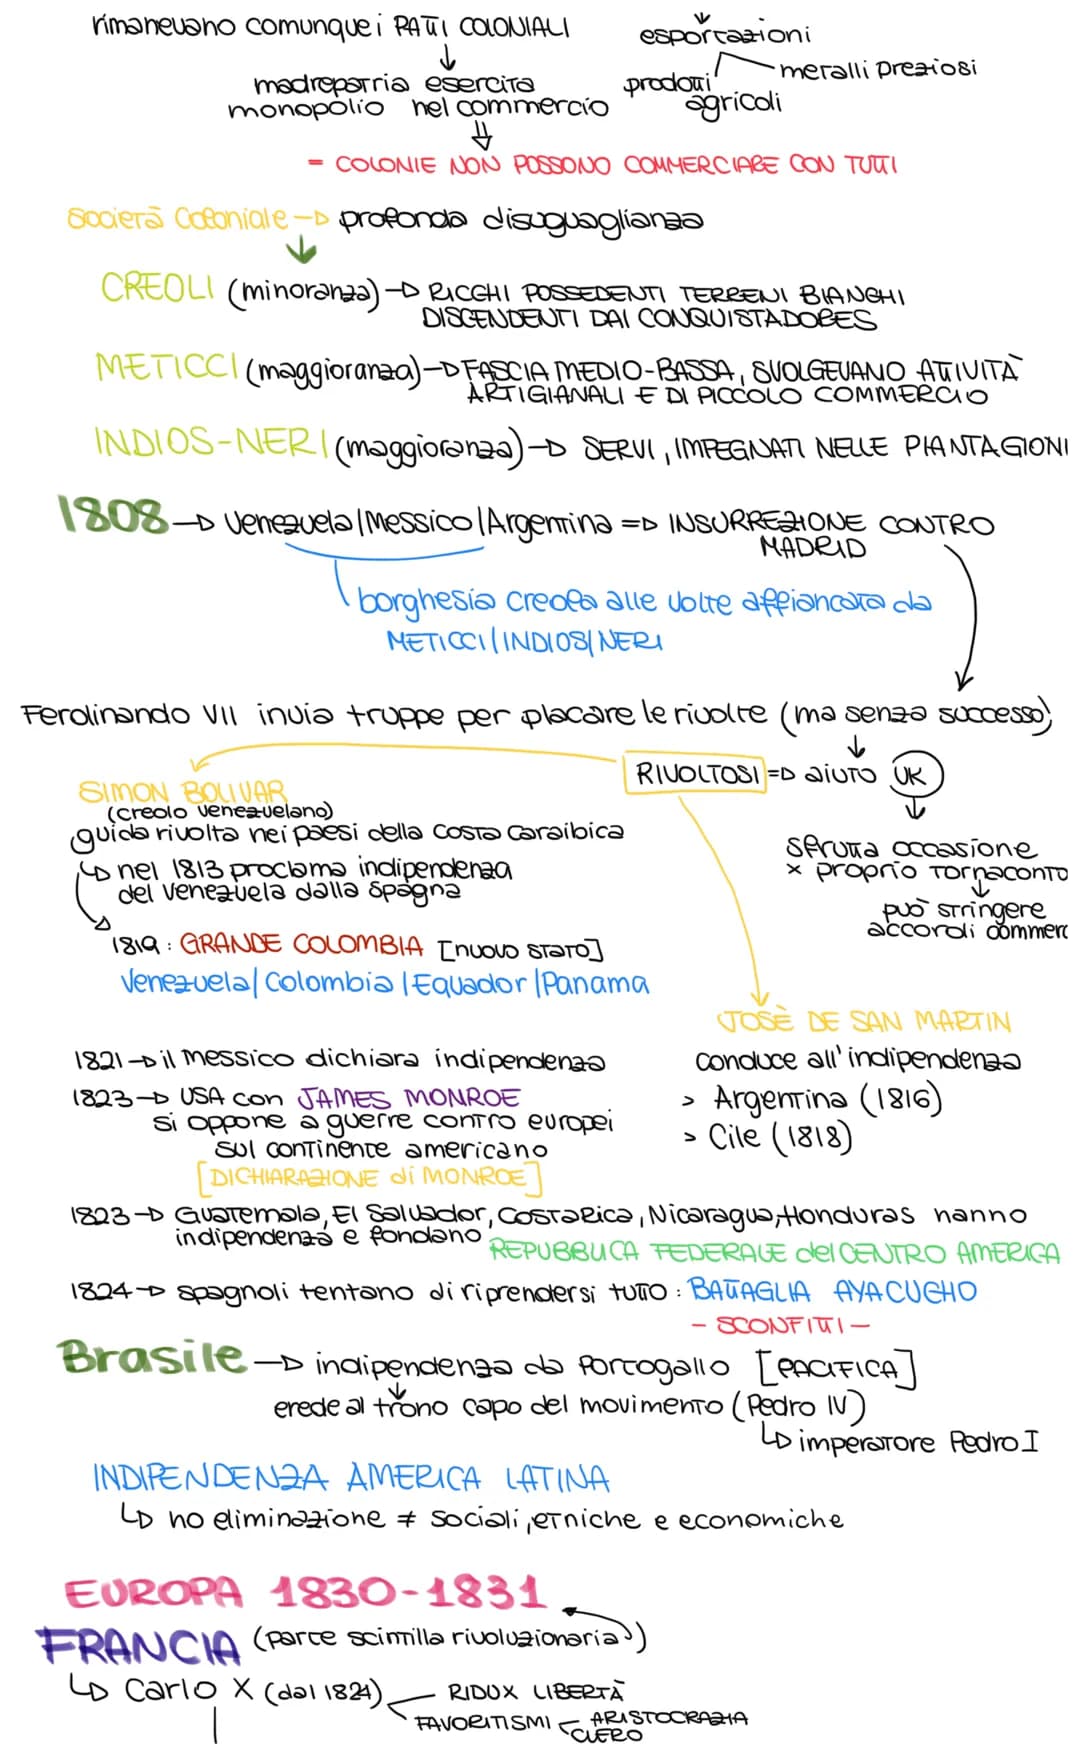 rimanevano comunque i PATTI COLONIALI
esportazioni
madrepatria esercita
monopolio nel commercio
prodotti
agricoli
metalli preziosi
= COLONIE NON POSSONO COMMERCIARE CON TUTTI
Società Coloniale → profonda disuguaglianza
CREOLI (minoranza) → RICCHI POSSEDENTI TERRENI BIANCHI
DISCENDENTI DAI CONQUISTADORES
METICCI (maggioranza) → FASCIA MEDIO-BASSA, SVOLGEVANO ATTIVITÀ
ARTIGIANALI E DI PICCOLO COMMERCIO
INDIOS-NERI (maggioranza) → SERVI, IMPEGNATI NELLE PIANTAGIONI
1808 → Venezuela/Messico/Argentina => INSURREZIONE CONTRO
MADRID
borghesia creola alle volte affiancata da
METICCI/INDIOS/NERI
Ferdinando VII invia truppe per placare le rivolte (ma senza successo)
RIVOLTOSI => aiuto UK
SIMON BOLIVAR
(creolo venezuelano)
guida rivolta nei paesi della costa caraibica
↳ nel 1813 proclama indipendenza
del Venezuela dalla Spagna
sfrutta occasione
x proprio tornaconto
può stringere
accordi commerc
1819: GRANDE COLOMBIA [nuovo stato]
Venezuela/Colombia/Equador/Panama
JOSÈ DE SAN MARTIN
conduce all'indipendenza
> Argentina (1816)
> Cile (1818)
1821 → il Messico dichiara indipendenza
1823 → USA con JAMES MONROE
si oppone a guerre contro europei
sul continente americano
[DICHIARAZIONE di MONROE]
1823 → Guatemala, El Salvador, Costa Rica, Nicaragua, Honduras hanno
indipendenza e fondano REPUBBLICA FEDERALE del CENTRO AMERICA
1824 → spagnoli tentano di riprendersi tutto: BATTAGLIA AYACUCHO
- SCONFITTI -
Brasile → indipendenza da Portogallo [PACIFICA]
erede al trono capo del movimento (Pedro IV)
↳ imperatore Pedro I
INDIPENDENZA AMERICA LATINA
↳ no eliminazione ≠ sociali, etniche e economiche
EUROPA 1830-1831
FRANCIA (parte scintilla rivoluzionaria)
↳ Carlo X (dal 1824)
RIDUX LIBERTÀ
FAVORITISMI
ARISTOCRAZIA
CLERO